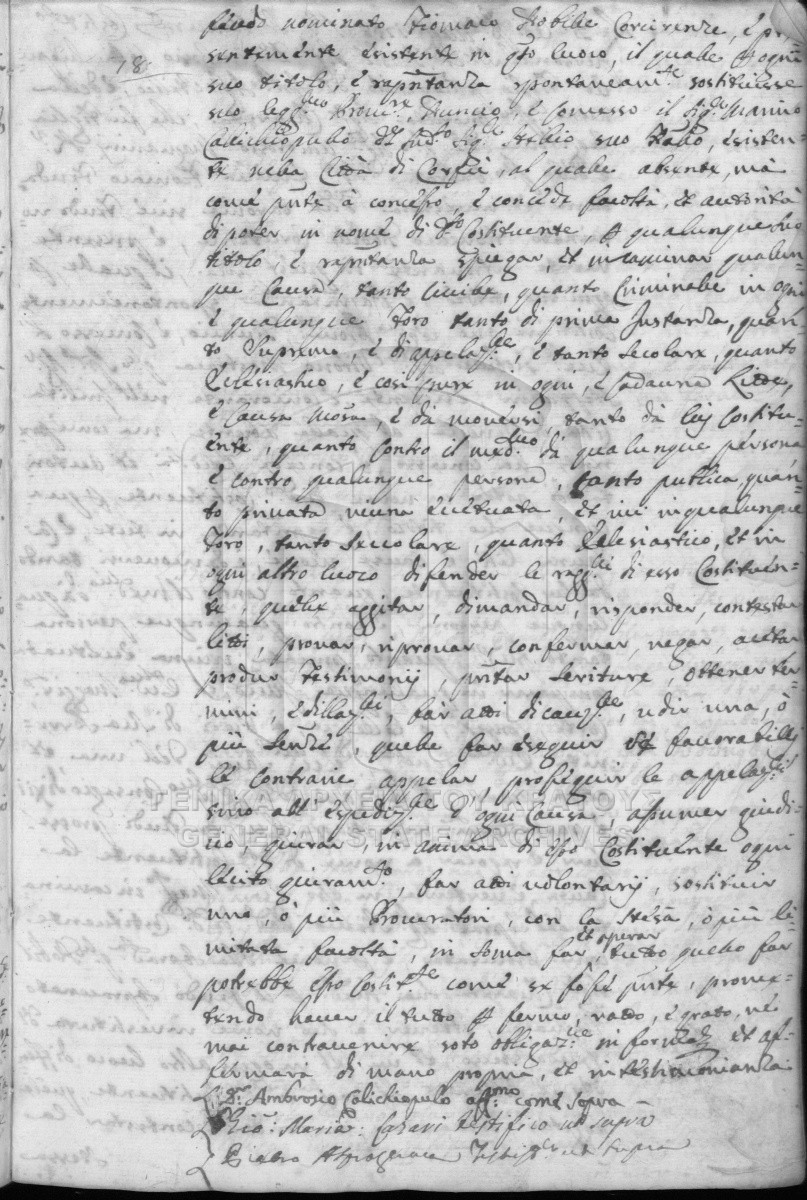 feudo nominato Fiomaco Nobile Corcirense, è pre
18
sentemente esistente in q.sto luoco, il quale p ogni
suo titolo, è rap̃ntanza spontaneam.te sostituisse
suo legg.mo Procur.re, Nuncio, è Comesso il Sig.r Marino
Calichiopulo suo existen-
te nella Città di Corfù, al quale absente, mà
come p̃nte à concesso, è concede facoltà, et autorità
di poter in nome di d.to Costituente, p qualunque suo
titolo, è rap̃ntanza spiegar, et incaminar qualun-
que Causa, tanto Civile, quanto Criminale in ogni
è qualunque Foro tanto di prima Instanza, quan-
to Supremo, è di appelaz.ne, è tanto secolare, quanto
Eclesiastico, è così pure in ogni, è cadauna Litte,
è Causa mossa, è da moversi, tanto dà luj Costitu-
ente, quanto contro il med.mo da qualunque persona
è contro qualunque persona, tanto publica, quan-
to privata niuna eccetuata, et ivi in qualunque
Foro, tanto Seccolare, quanto Eclesiastico, et in
ogni altro luoco difender le ragg.ni di esso Costituen-
te, quelle aggitar, dimandar, risponder, contestar
litti, provar, riprovar, confermar, negar, acetar
produr Testimonij, p̃ntar scriture, ottener ter-
mini, è dillaz.ni, far atti di cauz.ne, udir una, ò
più sentze, quelle far eseguir favorabilij
le contrarie appelar, proseguir le appelaz.ni
sino all' espediz.ne d'ogni Causa, assumer giudi-
cio, giurar, in anima di esso Costituente ogni
lecito giuram.to, far atti volontarij, sostituir
uno, ò più Procuratori, con la stessa, ò più li-
mitata facoltà, in soma far, et operar tutto quello far
potrebbe esso Costit.te come se fosse p̃nte, prome-
tendo haver il tutto p fermo, ratto, è grato, nè
mai contravenire soto obligaz.ne in forma et af-
firmarà di mano propria, et in testimonianza
D.r Ambrosio Calichiopulo aff.mo come sopra
Gio: Maria: Cazari testifico ut supra
Pietro Testif.o ut supra
ΓΕΝΙΚΑ ΑΡΧΕΙΑ ΤΟΥ ΚΡΑΤΟΥΣ
GENERAL STATE ARCHIVES